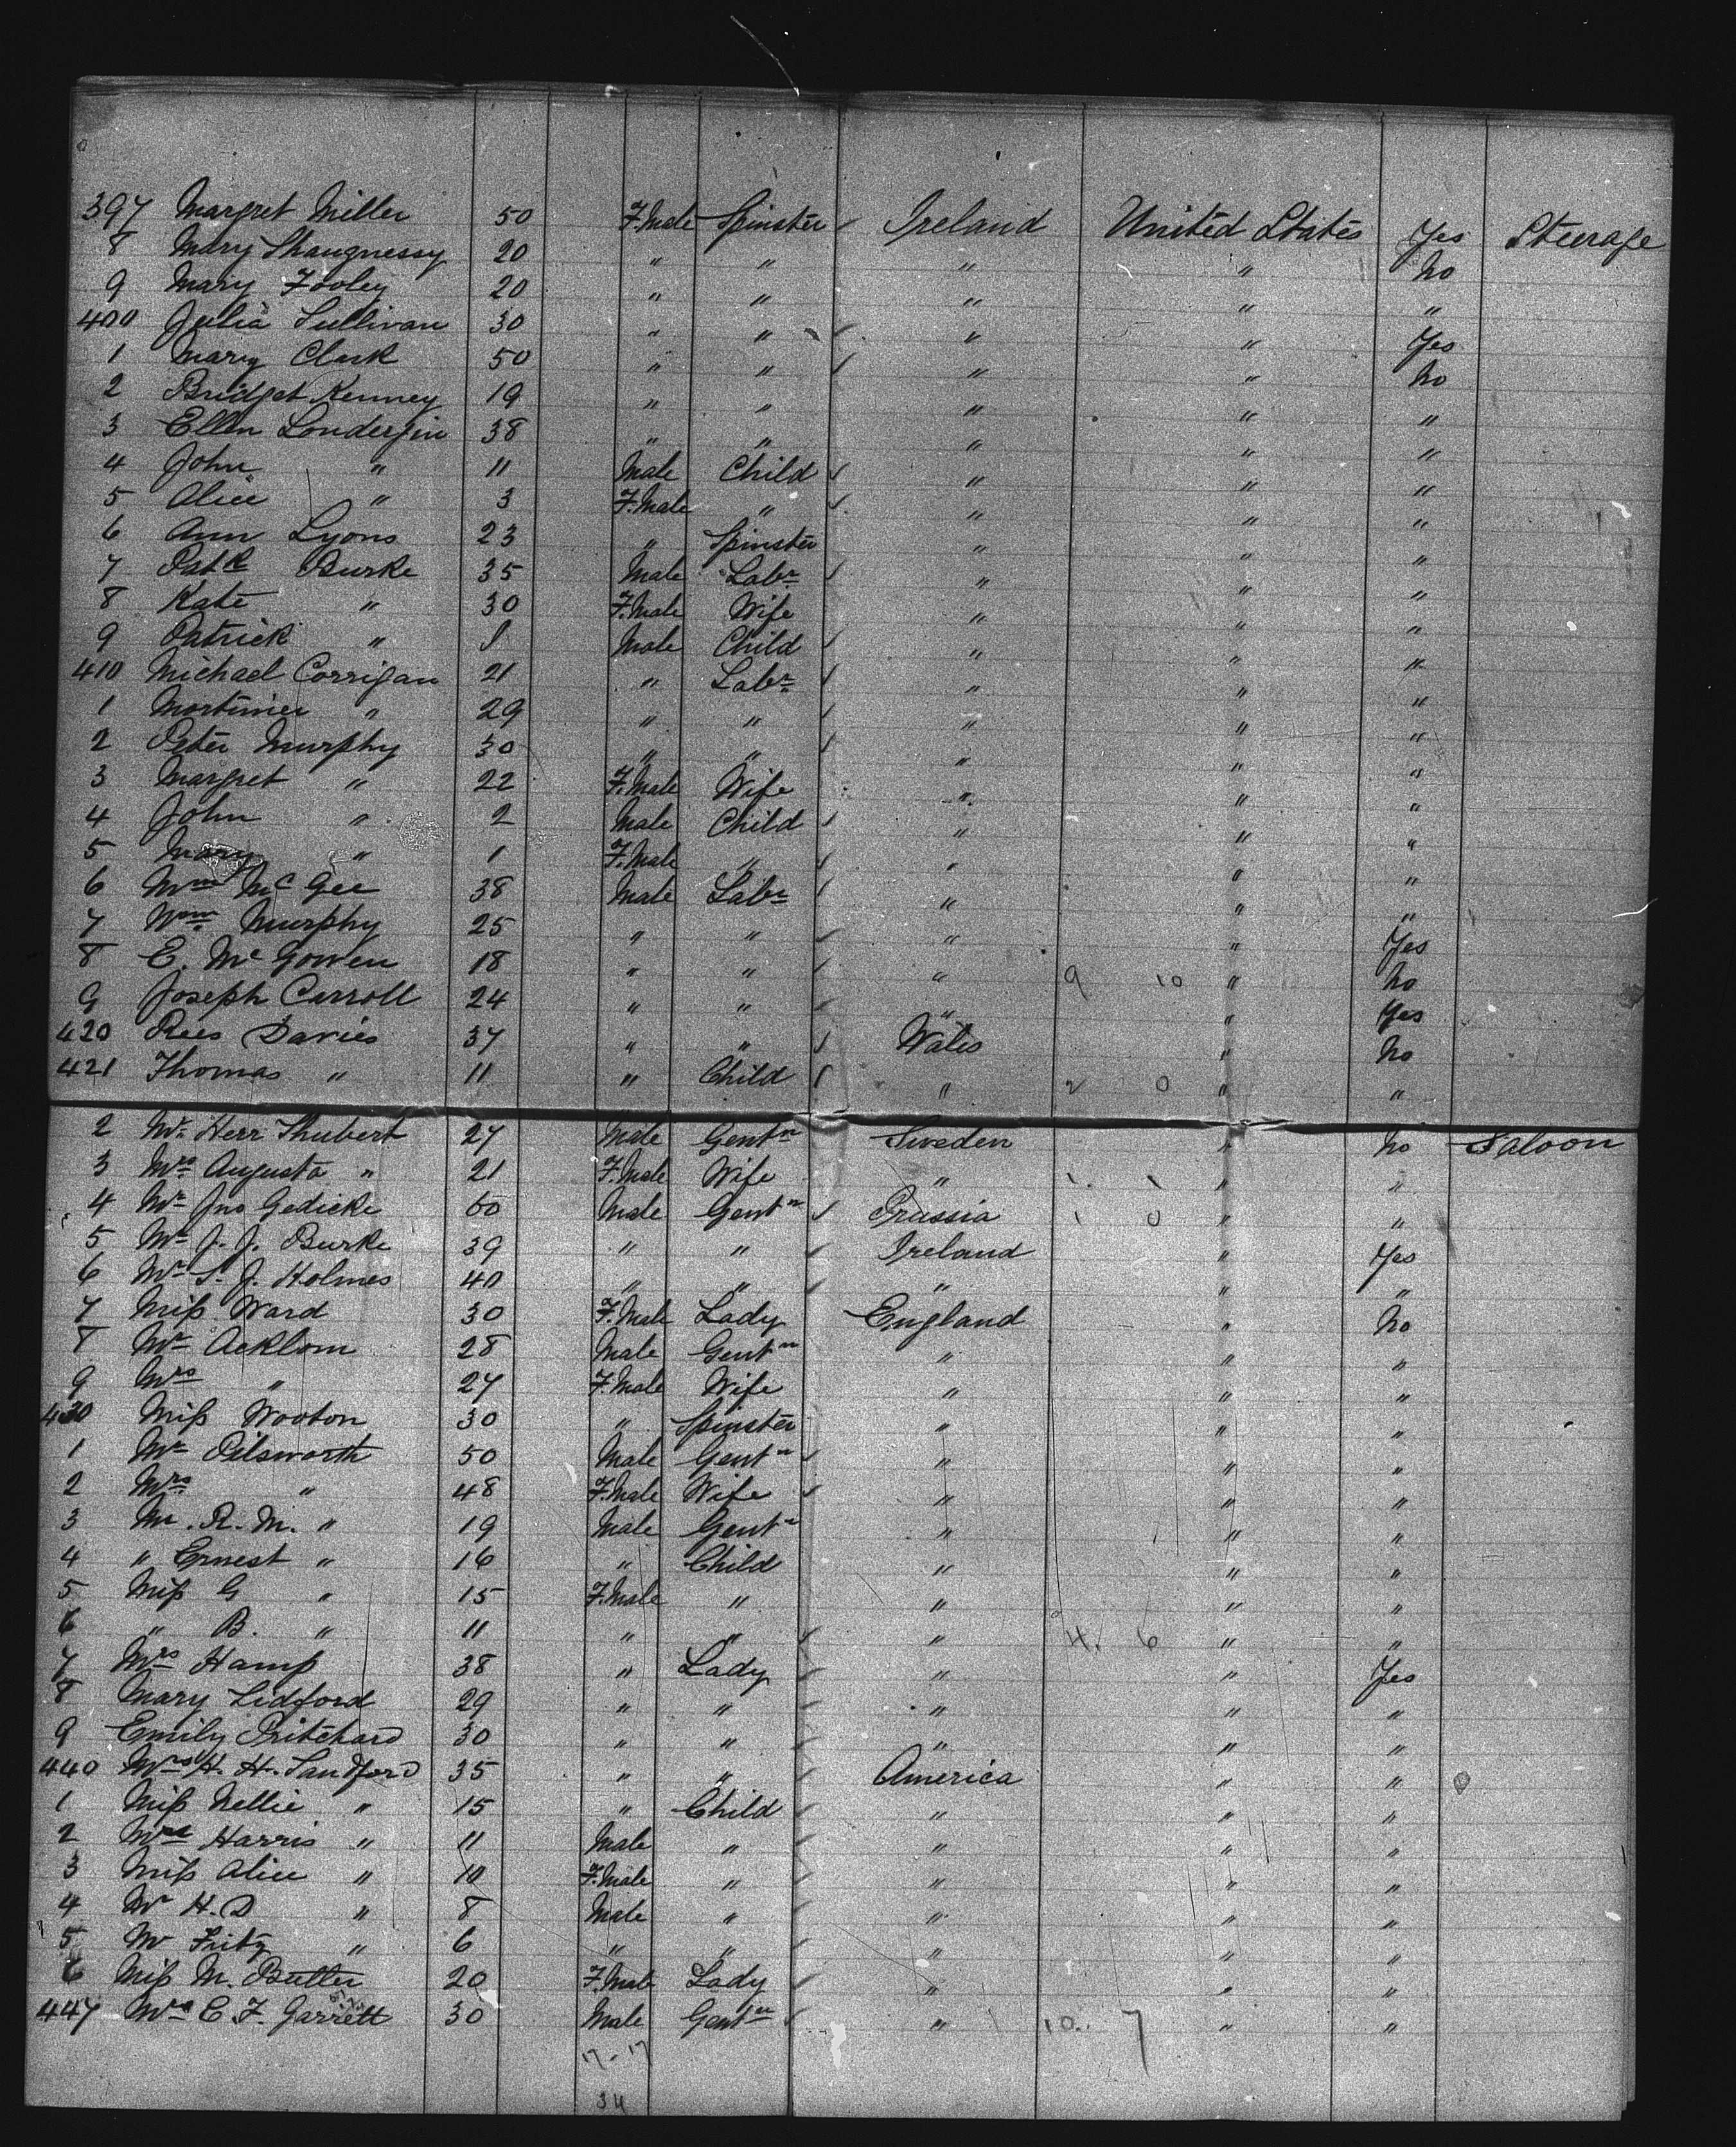 397 Margret Miller 50 F.Male Spinster Ireland United States Yes Steerage
8 Mary Shaugnessy 20 " " " " No
9 Mary Fooley 20 " " " " "
400 Julia Sullivan 30 " " " " Yes
1 Mary Clark 50 " " " " No
2 Bridget Kenney 19 " " " " "
3 Ellen Londerfin 38 " " " " "
4 John " 11 Male Child " " "
5 Alice " 3 F.Male " " " "
6 Ann Lyons 23 " Spinster " " "
7 Patk Burke 35 Male Labr " " "
8 Kate " 30 F.Male Wife " " "
9 Patrick " 1 Male Child " " "
410 Michael Corrigan 21 " Labr " " "
1 Mortimer " 29 " " " " "
2 Peter Murphy 30 " " " " "
3 Margret " 22 F.Male Wife " " "
4 John " 2 Male Child " " "
5 Mary " 1 F.Male " " " "
6 Wm McGee 38 Male Labr " " "
7 Wm Murphy 25 " " " " Yes
8 E. McGowen 18 " " " 9 10 " No
9 Joseph Carroll 24 " " " " Yes
420 Rees Davies 37 " " Wales " No
421 Thomas " 11 " Child " 2 0 " "
2 Mr Herr Thubert 27 Male Gentn Sweden " No Saloon
3 Mrs Augusta " 21 F.Male Wife " 1 1 " "
4 Mr Jno Gedicke 60 Male Gentn Prussia 1 0 " "
5 Mr J. J. Burke 39 " " Ireland " Yes
6 Mr S. J. Holmes 40 " " " " "
7 Miss Ward 30 F.Male Lady England " No
8 Mr Acklom 28 Male Gentn " " "
9 Mrs " 27 F.Male Wife " " "
430 Miss Wooton 30 " Spinster " " "
1 Mr Pilsworth 50 Male Gentn " " "
2 Mrs " 48 F.Male Wife " " "
3 Mr. R. M. " 19 Male Gentn " " "
4 " Ernest " 16 " Child " " "
5 Miss G " 15 F.Male " " " "
6 " B. " 11 " " " 4. 6 " "
7 Mrs Hamp 38 " Lady " " Yes
8 Mary Lidford 29 " " " " "
9 Emily Pritchard 30 " " " " "
440 Mrs H. H. Sandford 35 " " America " "
1 Miss Nellie " 15 " Child " " "
2 Mr Harris " 11 Male " " " "
3 Miss Alice " 10 F.Male " " " "
4 Mr H.D " 8 Male " " " "
5 Mr Fritz " 6 " " " " "
6 Miss M. Butler 20 F.Male Lady " " "
447 Mr C. F. Garrett 30 Male Gentn " 10. 7 " "
17-17
34